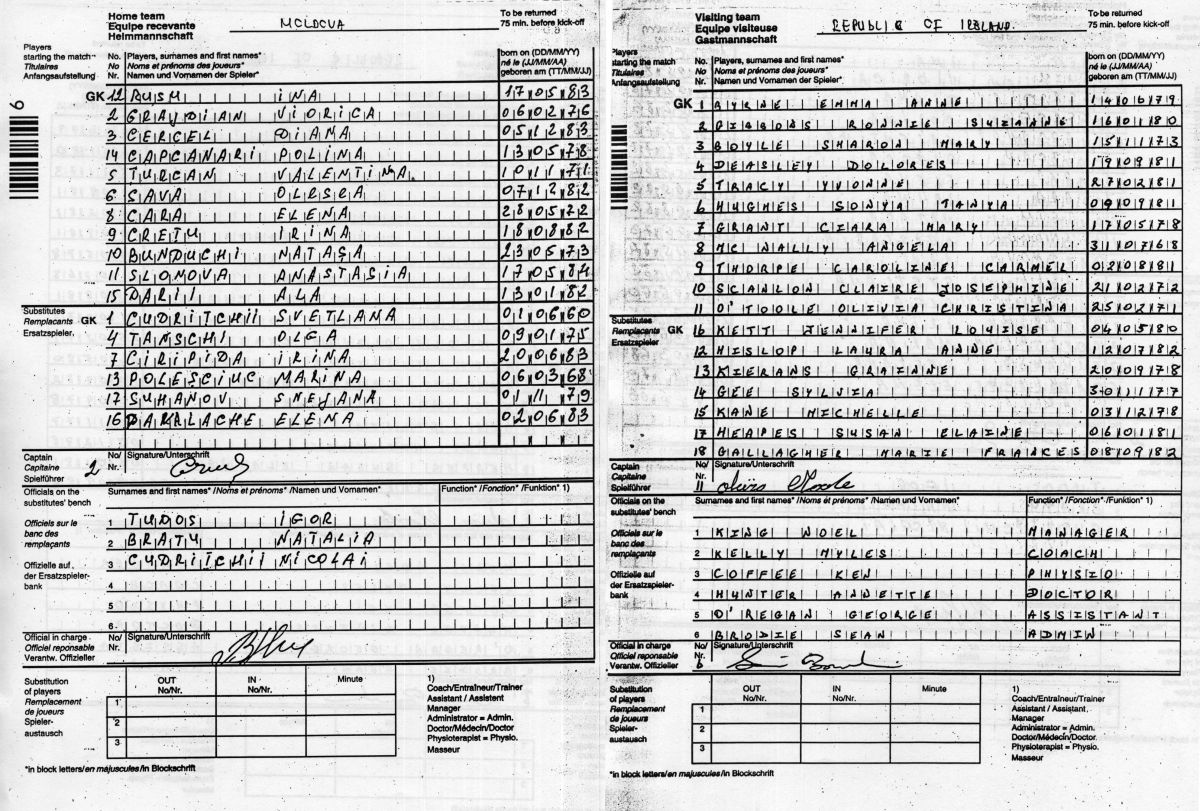 Home team
Equipe recevante
Heimmannschaft
MOLDOVA
To be returned
75 min. before kick-off
Players
starting the match
Titulaires
Anfangsaufstellung
No. Players, surnames and first names*
No Noms et prénoms des joueurs*
Nr. Namen und Vornamen der Spieler*
born on (DD/MM/YY)
né le (JJ/MM/AA)
geboren am (TT/MM/JJ)
GK 12 RUSM INA 17 05 83
2 GRAYDIAN VIORICA 06 02 76
3 CERCEL DIANA 05 12 83
14 CAPCANARI POLINA 13 05 78
5 TURCAN VALENTINA 10 11 71
6 SAVA OLESEA 07 12 82
8 CARA ELENA 28 05 72
9 CRETU IRINA 18 08 82
10 BUNDUCHI NATAȘA 23 05 73
11 SLOMOVA ANASTASIA 17 05 84
15 DARII ALA 13 01 82
Substitutes
Remplacants GK
Ersatzspieler.
1 CUDRITCHII SVETLANA 01 06 60
4 TANSCHI OLGA 09 01 75
7 CIRIPIDA IRINA 20 06 83
13 POLESCIUC MARINA 06 03 68
17 SUHANOV SNEJANA 01 11 79
16 DARALACHE ELENA 02 06 83
Captain
Capitaine
Spielführer
2
No/
Nr.
Signature/Unterschrift
Officials on the
substitutes' bench
Officiels sur le
banc des
remplaçants
Offizielle auf
der Ersatzspieler-
bank
Surnames and first names* /Noms et prénoms* /Namen und Vornamen*
Function* /Fonction* /Funktion* 1)
1 TUDOS IGOR
2 BRATU NATALIA
3 CUDRITCHII NICOLAI
4
5
6
Official in charge
Officiel reponsable
Verantw. Offizieller
No/
Nr.
Signature/Unterschrift
Substitution
of players
Remplacement
de joueurs
Spieler-
austausch
OUT
No/Nr.
IN
No/Nr.
Minute
1
2
3
1)
Coach/Entraîneur/Trainer
Assistant / Assistent
Manager
Administrator = Admin.
Doctor/Médecin/Doctor
Physioterapist = Physio.
Masseur
*in block letters/en majuscules/in Blockschrift
Visiting team
Equipe visiteuse
Gastmannschaft
REPUBLIC OF IRELAND
To be returned
75 min. before kick-off
Players
starting the match
Titulaires
Anfangsaufstellung
No. Players, surnames and first names*
No Noms et prénoms des joueurs*
Nr. Namen und Vornamen der Spieler*
born on (DD/MM/YY)
né le (JJ/MM/AA)
geboren am (TT/MM/JJ)
GK 1 BYRNE EMMA ANNE 14 06 79
2 GIBBONS RONNIE SUZANNE 16 01 80
3 BOYLE SHARON MARY 15 11 73
4 DEASLEY DOLORES 19 09 81
5 TRACY YVONNE 27 02 81
6 HUGHES SONYA TANYA 09 09 81
7 GRANT CIARA MARY 17 05 78
8 MC NALLY ANGELA 31 07 68
9 THORPE CAROLINE CARMEL 02 08 81
10 SCANLON CLAIRE JOSEPHINE 21 02 72
11 O'TOOLE OLIVIA CHRISTINA 25 02 71
Substitutes
Remplaçants GK
Ersatzspieler
16 KETT JENNIFER LOUISE 04 05 80
12 HISLOP LAURA ANNE 12 07 82
13 KIERANS GRAINNE 20 09 78
14 GEE SYLVIA 30 11 77
15 KANE MICHELLE 03 12 78
17 HEAPES SUSAN ELAINE 06 01 81
18 GALLAGHER MARIE FRANCES 08 09 82
Captain
Capitaine
Spielführer
No/
Nr.
11
Signature/Unterschrift
Officials on the
substitutes' bench
Officiels sur le
banc des
remplaçants
Offizielle auf
der Ersatzspieler-
bank
Surnames and first names* /Noms et prénoms* /Namen und Vornamen*
Function* /Fonction* /Funktion* 1)
1 KING NOEL MANAGER
2 KELLY MYLES COACH
3 COFFEE KEN PHYSIO
4 HUNTER ANNETTE DOCTOR
5 O'REGAN GEORGE ASSISTANT
6 BRODIE SEAN ADMIN
Official in charge
Officiel reponsable
Verantw. Offizieller
No/
Nr.
6
Signature/Unterschrift
Substitution
of players
Remplacement
de joueurs
Spieler-
austausch
OUT
No/Nr.
IN
No/Nr.
Minute
1
2
3
1)
Coach/Entraîneur/Trainer
Assistant / Assistant.
Manager
Administrator = Admin.
Doctor/Médecin/Doctor.
Physioterapist = Physio.
Masseur
*in block letters/en majuscules/in Blockschrift